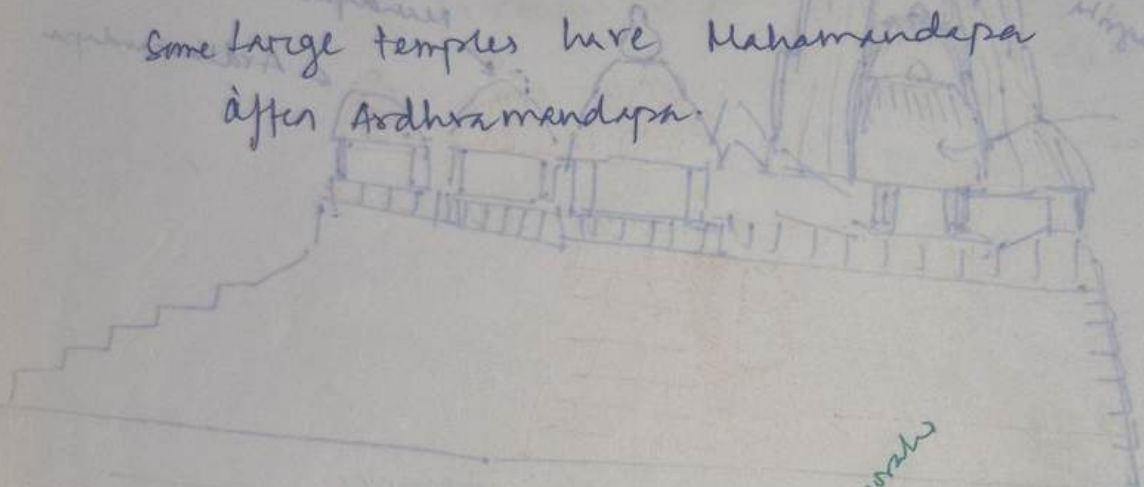 Some large temples have Mahamandapa
after Ardhramandapa.